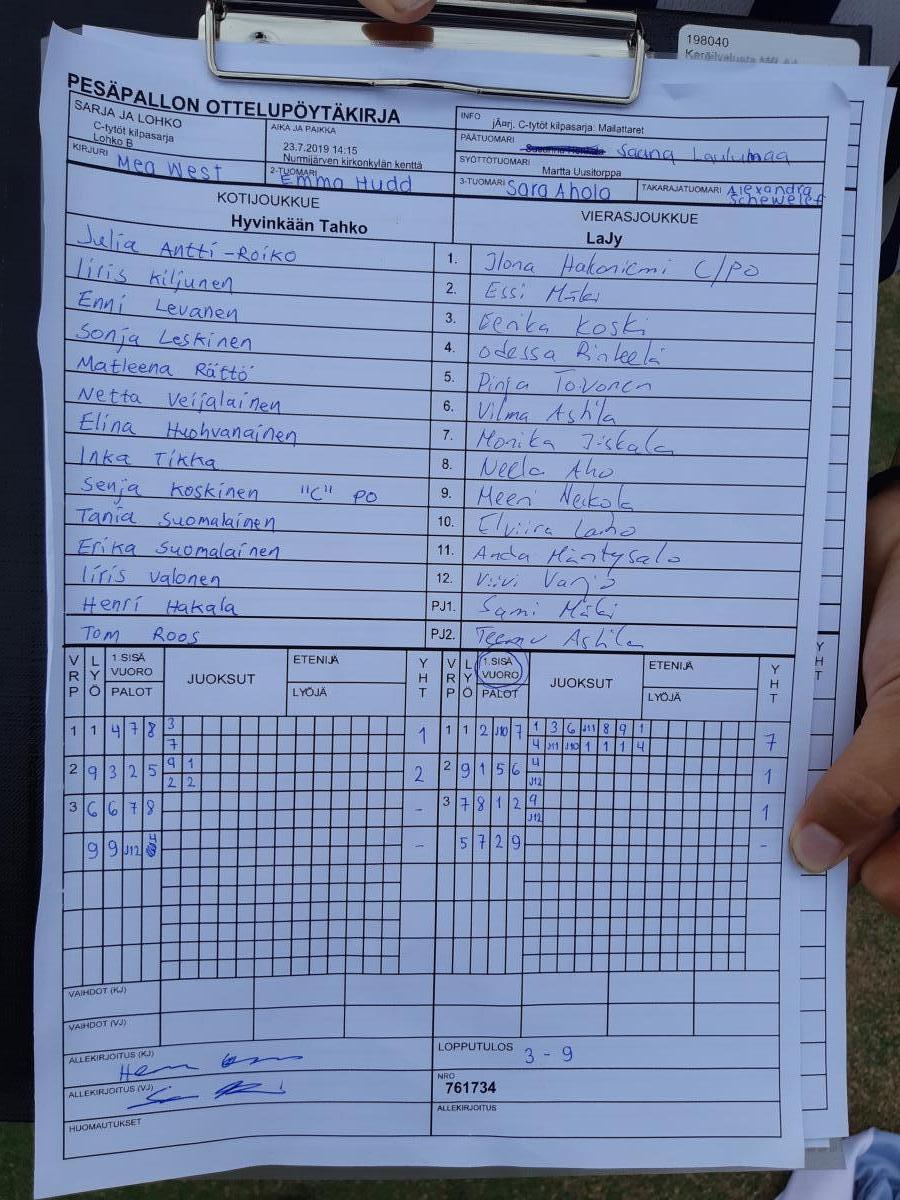 198040
PESÄPALLON OTTELUPÖYTÄKIRJA
SARJA JA LOHKO
C-tytöt kilpasarja
Lohko B
AIKA JA PAIKKA
23.7.2019 14:15
Nurmijärven kirkonkylän kenttä
INFO
jÄ¤rj. C-tytöt kilpasarja: Mailattaret
PÄÄTUOMARI Sauna Laulumaa
SYÖTTÖTUOMARI Martta Uusitorppa
KIRJURI Mea West
2-TUOMARI Emma Hudd
3-TUOMARI Sara Ahola
TAKARAJATUOMARI Alexandra
KOTIJOUKKUE
Hyvinkään Tahko
VIERASJOUKKUE
LaJy
Julia Antti-Roiko 1. Ilona Hakoniemi C/PO
Iiris Kiljunen 2. Essi Mäki
Enni Levanen 3. Eerika Koski
Sonja Leskinen 4. Odessa Rinteelä
Matleena Rättö 5. Pinja Toivonen
Netta Veijalainen 6. Vilma Ashila
Elina Huohvanainen 7. Monika
Inka Tikka 8. Neela Aho
Senja Koskinen "C" PO 9. Meeri Neikola
Tania Suomalainen 10. Elviira
Erika Suomalainen 11. Anda Mäntysalo
Iiris Valonen 12. Viivi
Henri Hakala PJ1. Sami Mäki
Tom Roos PJ2. Teemu Ashila
VRP LYÖ 1.SISÄ VUORO PALOT JUOKSUT ETENIJÄ LYÖJÄ YHT VRP LYÖ 1.SISÄ VUORO PALOT JUOKSUT ETENIJÄ LYÖJÄ YHT
1 1 4 7 8 3 1 1 1 2 J10 7 1 3 6 J11 8 9 1 7
7 4 J11 J10 1 1 1 4
2 9 3 2 5 9 1 2 2 9 1 5 6 4 1
2 2 J12
3 6 6 7 8 - 3 7 8 1 2 9 1
J12
9 9 J12 4 - 5 7 2 9 -
VAIHDOT (KJ)
VAIHDOT (VJ)
ALLEKIRJOITUS (KJ)
LOPPUTULOS 3 - 9
ALLEKIRJOITUS (VJ)
NRO
761734
HUOMAUTUKSET
ALLEKIRJOITUS
Y
H
T